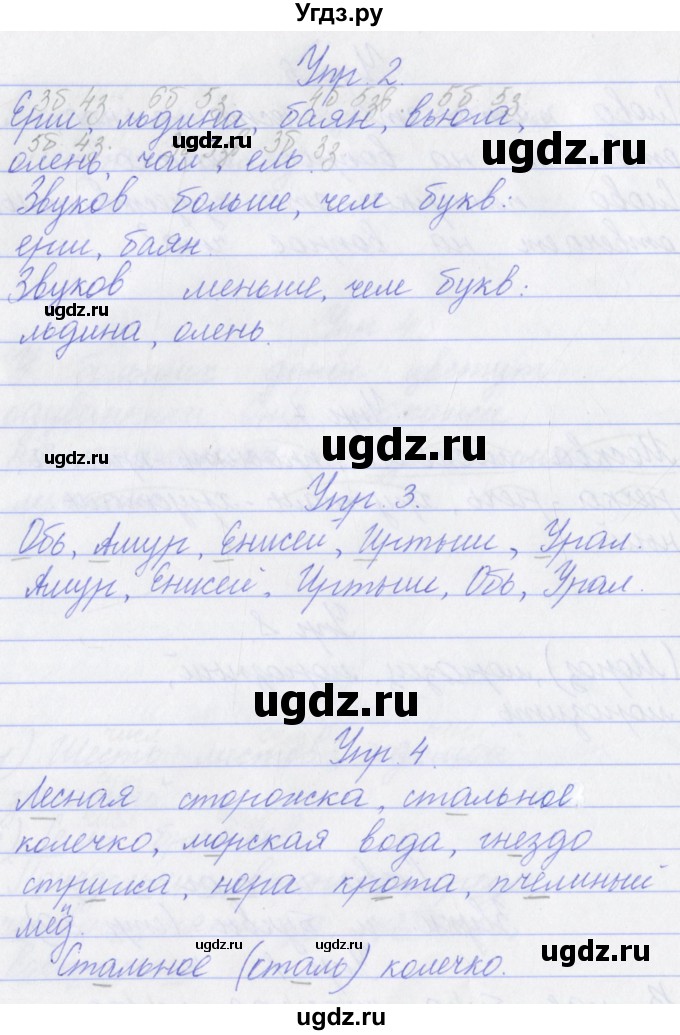 Угдз.ру
Упр. 2.
3б 4з 6б 5з 4б 5зв. 5б 5з
Ерш, льдина, баян, вьюга,
5б 4з. 3б 3з
олень, чай, ель.
Звуков больше, чем букв:
ерш, баян.
Звуков меньше, чем букв:
льдина, олень.
Упр. 3.
Обь, Амур, Енисей, Иртыш, Урал.
Амур, Енисей, Иртыш, Обь, Урал.
Упр. 4.
Лесная сторожка, стальное
колечко, морская вода, гнездо
стрижа, нора крота, пчелиный
мёд.
Стальное (сталь) колечко.
ugdz.ru
ugdz.ru
ugdz.ru
ugdz.ru
ugdz.ru
ugdz.ru
ugdz.ru
ugdz.ru
ugdz.ru
ugdz.ru
ugdz.ru